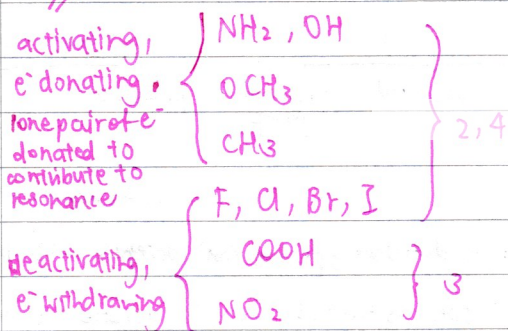 activating,
e⁻ donating.
lone pair of e⁻
donated to
contribute to
resonance
NH₂, OH
OCH₃
CH₃
2,4
F, Cl, Br, I
deactivating,
e⁻ withdrawing
COOH
NO₂
3